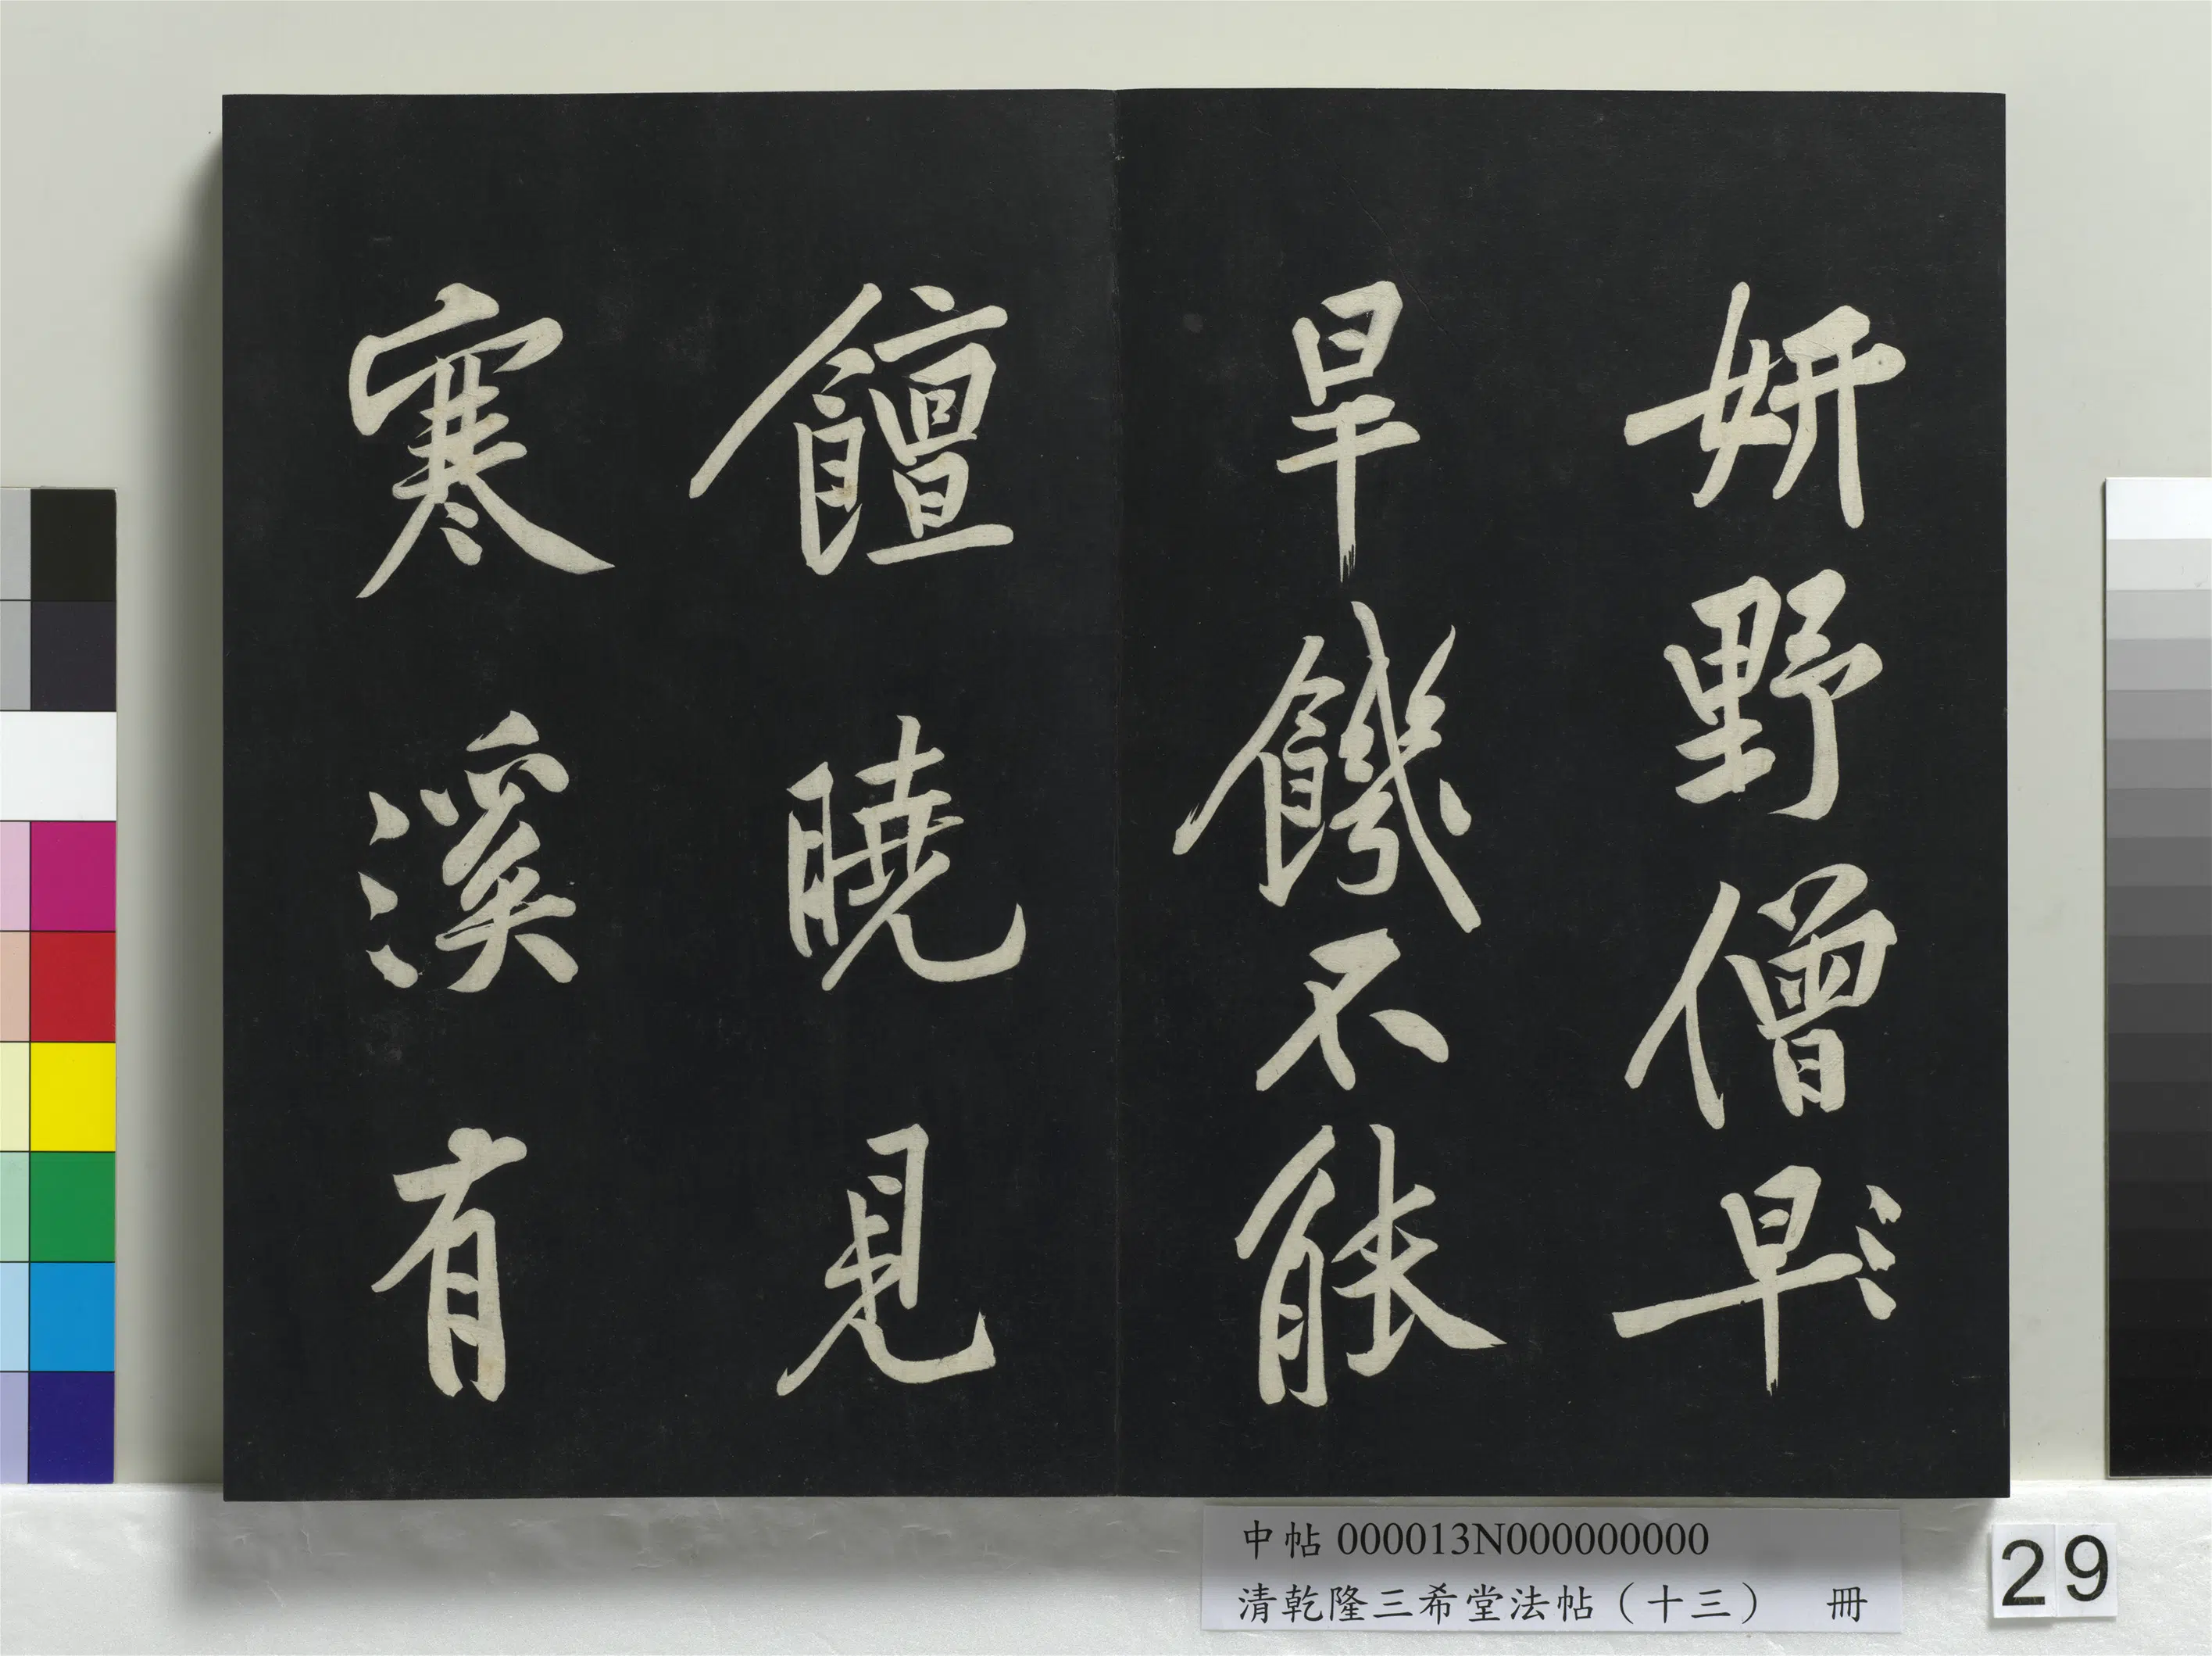 妍野僧早
旱饑不能
饘曉見
寒溪有
中帖 000013N000000000
清乾隆三希堂法帖（十三） 冊
29